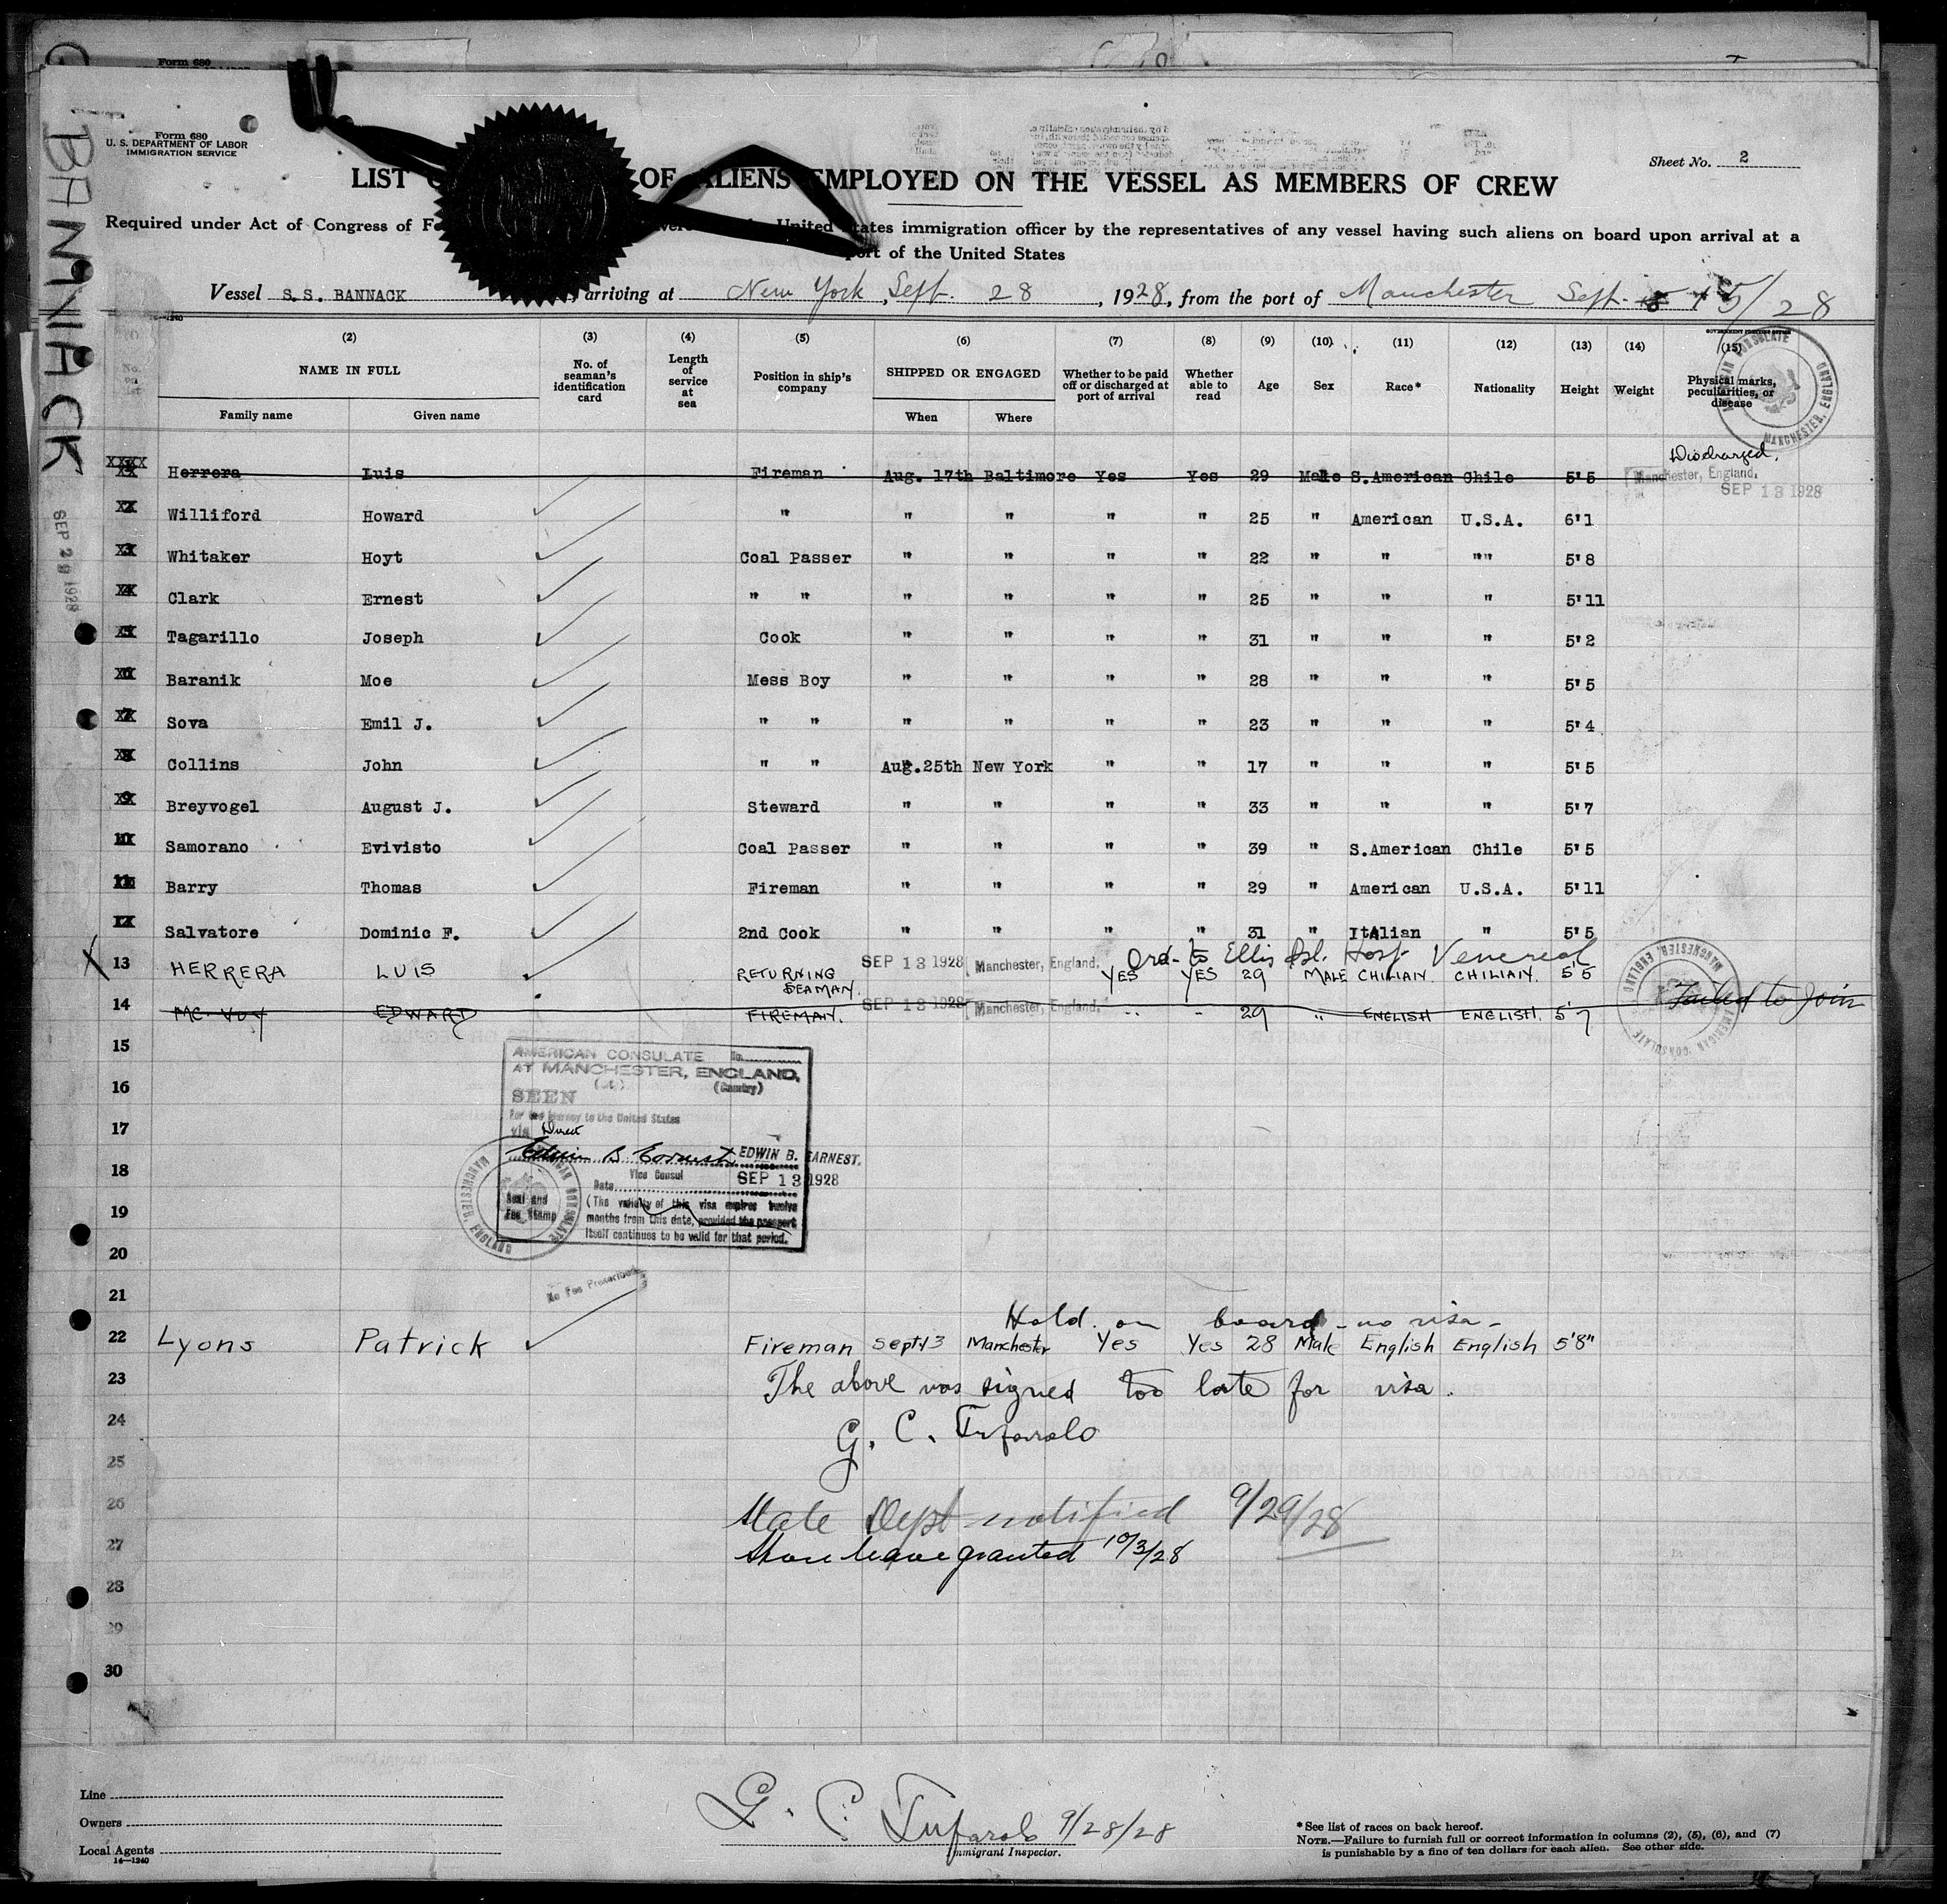 Form 680
BANNACK
SEP 29 1928
Form 680
U. S. DEPARTMENT OF LABOR
IMMIGRATION SERVICE
Sheet No. 2
LIST OF ALIENS EMPLOYED ON THE VESSEL AS MEMBERS OF CREW
Required under Act of Congress of United States immigration officer by the representatives of any vessel having such aliens on board upon arrival at a
port of the United States
Vessel S.S. BANNACK arriving at New York, Sept. 28, 1928, from the port of Manchester Sept. 15/28
No. on list
(2) (3) (4) (5) (6) (7) (8) (9) (10) (11) (12) (13) (14) (15)
NAME IN FULL No. of seaman's identification card Length of service at sea Position in ship's company SHIPPED OR ENGAGED Whether to be paid off or discharged at port of arrival Whether able to read Age Sex Race* Nationality Height Weight Physical marks, peculiarities, or disease
Family name Given name When Where
AMERICAN CONSULATE MANCHESTER, ENGLAND
Discharged.
Herrera Luis Fireman Aug. 17th Baltimore Yes Yes 29 Male S.American Chile 5'5 Manchester, England.
SEP 13 1928
2 Williford Howard " " " " " 25 " American U.S.A. 6'1
3 Whitaker Hoyt Coal Passer " " " " 22 " " "" 5'8
4 Clark Ernest " " " " " " 25 " " " 5'11
5 Tagarillo Joseph Cook " " " " 31 " " " 5'2
6 Baranik Moe Mess Boy " " " " 28 " " " 5'5
7 Sova Emil J. " " " " " " 23 " " " 5'4
8 Collins John " " Aug.25th New York " " 17 " " " 5'5
9 Breyvogel August J. Steward " " " " 33 " " " 5'7
10 Samorano Evivisto Coal Passer " " " " 39 " S.American Chile 5'5
11 Barry Thomas Fireman " " " " 29 " American U.S.A. 5'11
12 Salvatore Dominic F. 2nd Cook " " " " 31 " Italian " 5'5
Ord. to Ellis Isl. Hosp. Venereal
X 13 HERRERA LUIS RETURNING SEAMAN. SEP 13 1928 Manchester, England. YES YES 29 MALE CHILIAN. CHILIAN. 5'5
14 MC. EDWARD FIREMAN. SEP 13 1928 Manchester, England. " - 29 " ENGLISH ENGLISH. 5'7 Failed to Join
AMERICAN CONSULATE MANCHESTER, ENGLAND
15
AMERICAN CONSULATE No.
AT MANCHESTER, ENGLAND.
(Country)
16
SEEN
For the journey to the United States
17
via Direct
Edwin B Earnest EDWIN B. EARNEST.
18
Vice Consul
Date SEP 13 1928
Seal and Fee Stamp
(The validity of this visa expires twelve
19
months from this date, provided the passport
itself continues to be valid for that period.
AMERICAN CONSULATE MANCHESTER, ENGLAND
20
No Fee Prescribed
21
Hold on board - no visa -
22 Lyons Patrick Fireman Sept 13 Manchester Yes Yes 28 Male English English 5'8"
23 The above was signed too late for visa.
24 G. C. Tufarolo
25
26 State Dept notified 9/29/28
27 Shore leave granted 10/3/28
28
29
30
Line
Owners
Local Agents
14—1240
G. C. Tufarolo 9/28/28
Immigrant Inspector.
*See list of races on back hereof.
NOTE.—Failure to furnish full or correct information in columns (2), (5), (6), and (7)
is punishable by a fine of ten dollars for each alien. See other side.